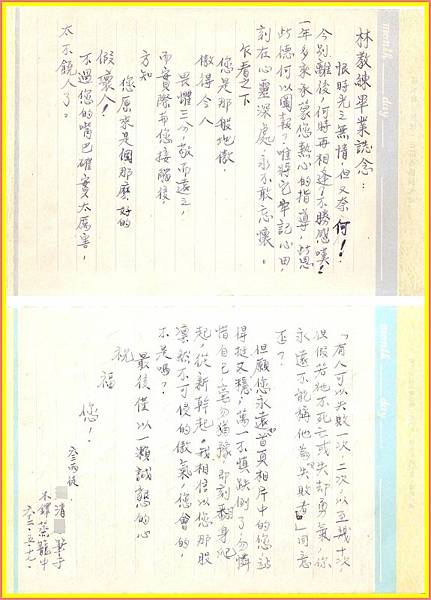 林教練畢業誌念：
恨時光之無情，但又奈何！
今別離後，何時再相逢，不勝感嘆！
一年多來承蒙您熱心的指導，此恩
此德何以圖報？唯將它牢記心田，
刻在心靈深處，永不敢忘懷。
乍看之下
您是那般地傲，
傲得令人
畏懼三分，敬而遠之，
而每實際再您接觸後，
方知
您原來是個那麼好的
假壞人！
不過您的嘴巴確實太厲害，
太不饒人了。
「有人可以失敗一次，二次，以至幾十次，
但假若他不死亡或失却勇氣，你
永遠不能稱他為"失敗者"」同意
否？
但願您永遠"首頁相片中的您"站
得挺又穩，萬一不慎跌倒了勿憐
惜自己，無勿猶豫，即刻翻身爬
起，從新幹起。我相信以您那股
凜然不可侵的傲氣，您會的，
不是嗎？
最後僅以一顆誠懇的心
祝
福
您！
清
筆于
木鐸 榮龍中
month day
month day